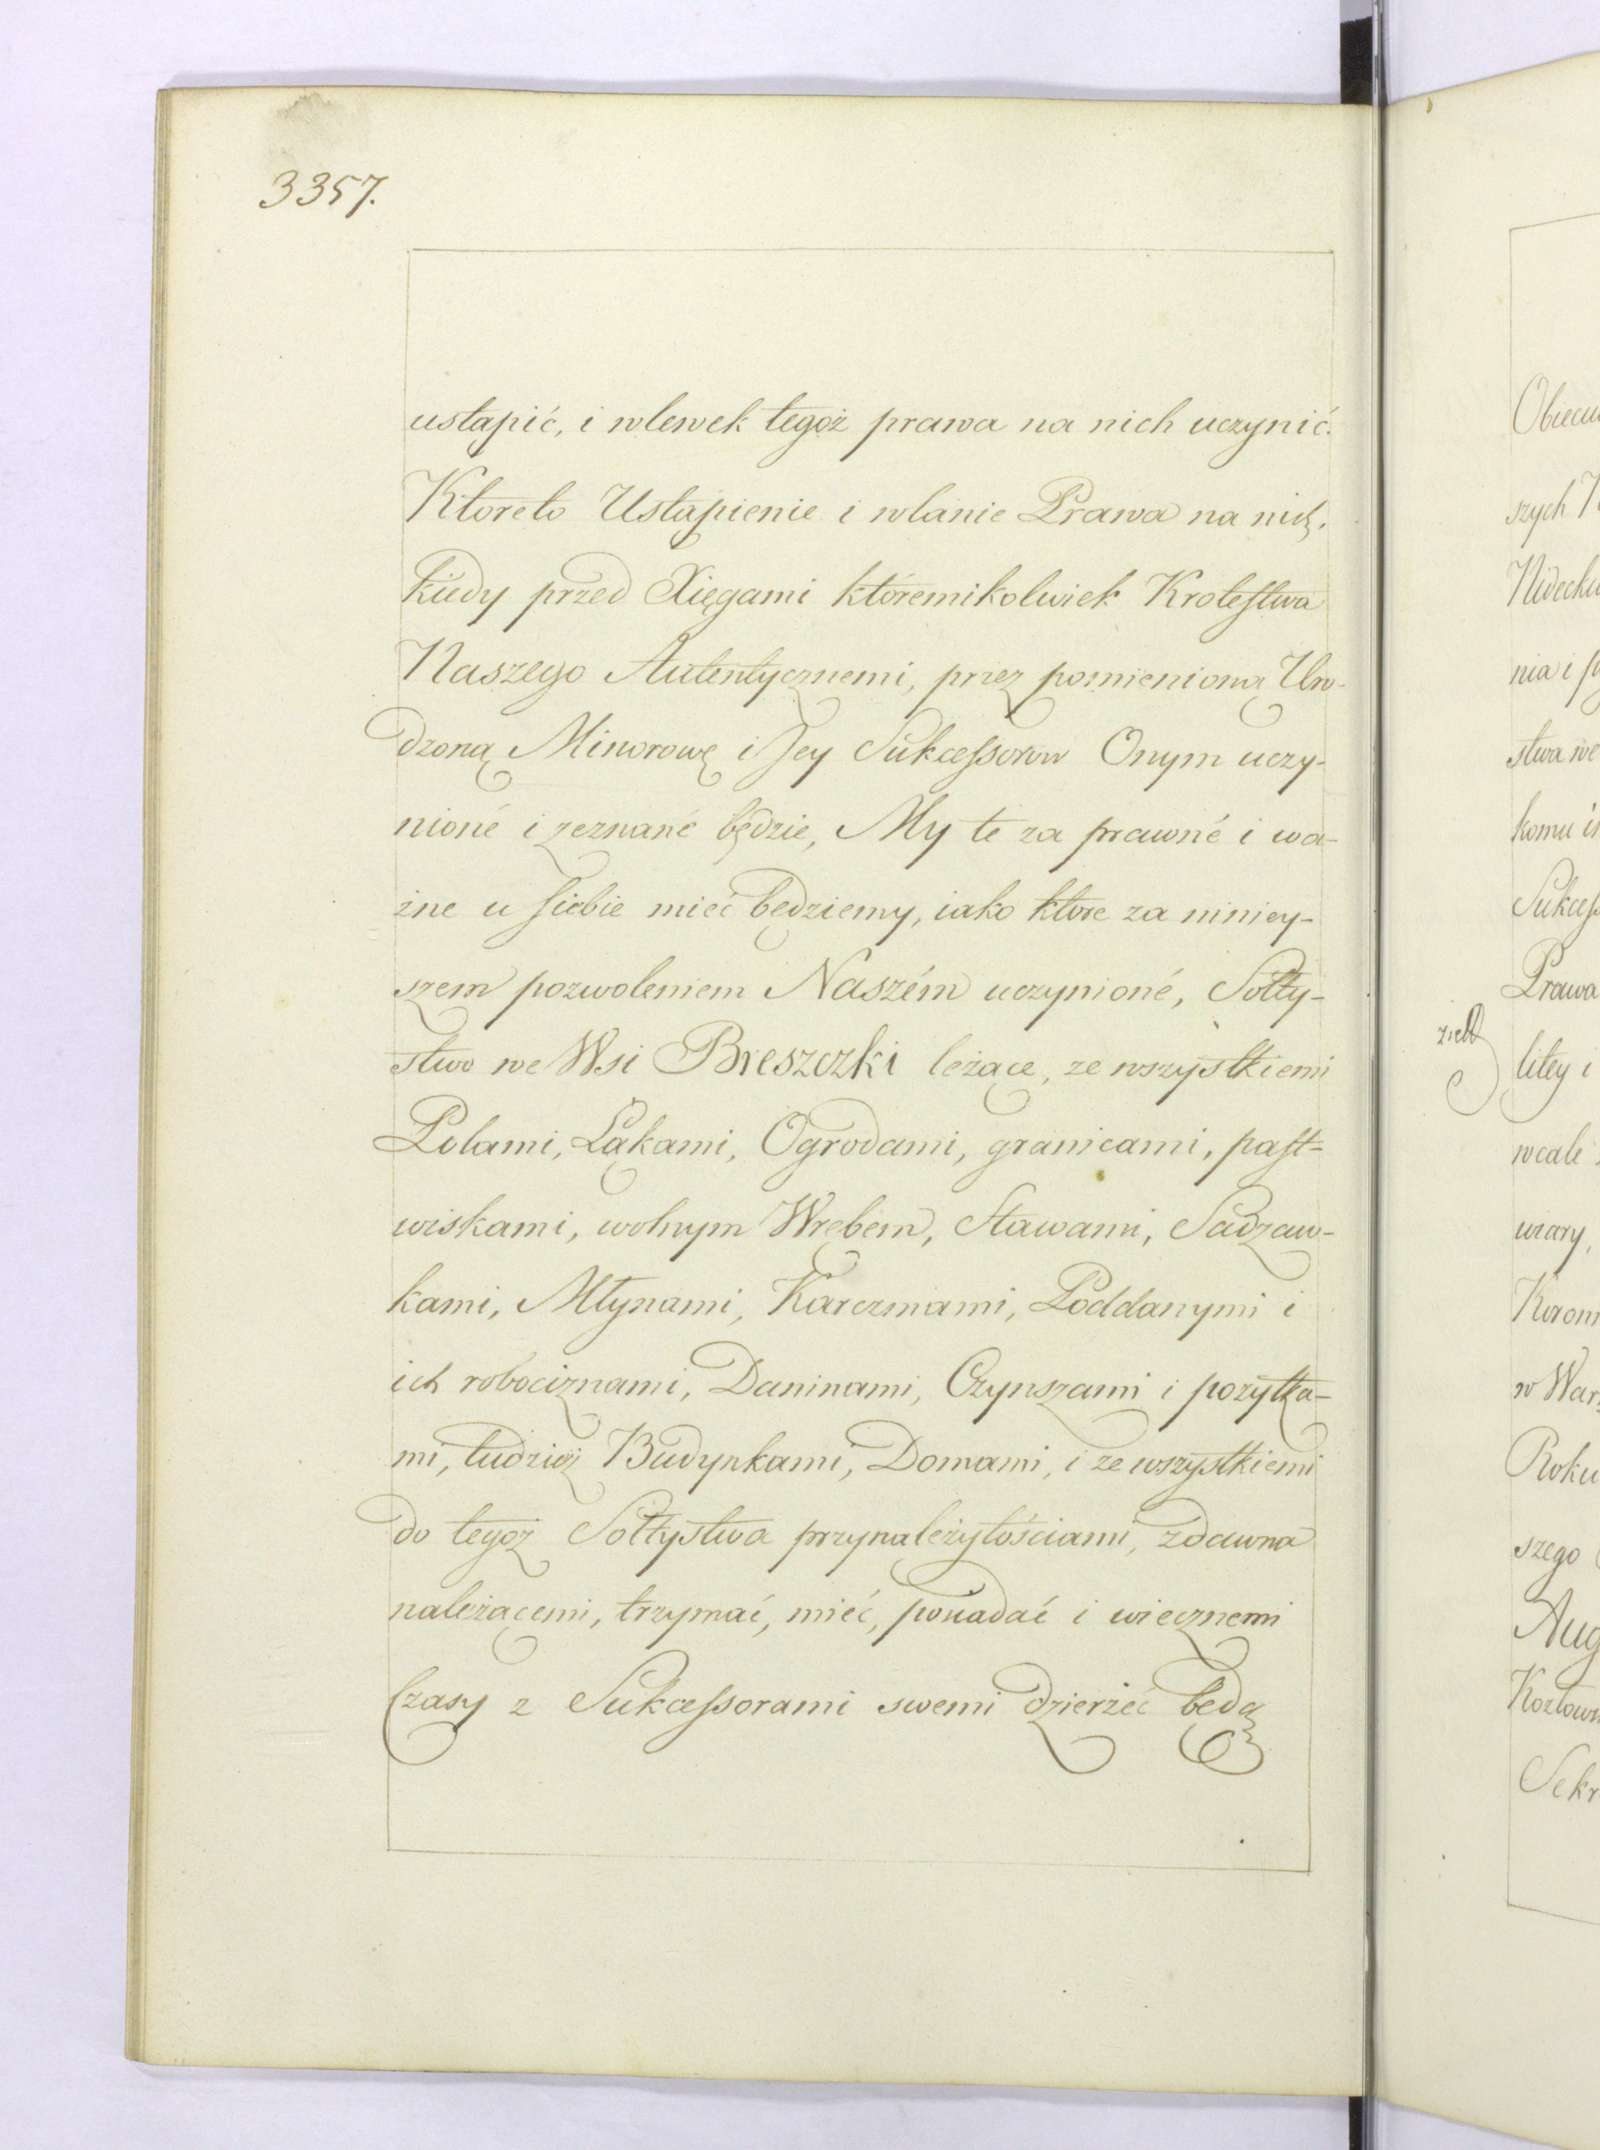 3357.
ustąpić, i wlewek tegoż prawa na nich uczynić.
Ktoreto Ustąpienie i wlanie Prawa na nich,
kiedy przed Xięgami któremikolwiek Krolestwa
Naszego Autentycznemi, przez pomienioną Uro-
dzoną Minorowę i Jey Sukcessorow Onym uczy-
nioné i zeznané będzie, My te za prawné i wa-
żne u siebie mieć będziemy, iako ktore za niniey-
szem pozwoleniem Naszém uczynioné, Sołty-
stwo we Wsi Breszczki leżące, ze wszystkiemi
Polami, Łąkami, Ogrodami, granicami, past-
wiskami, wolnym Wrębem, Stawami, Sadzaw-
kami, Młynami, Karczmami, Poddanymi i
ich robociznami, Daninami, Czynszami i pożytka-
mi, tudzież Budynkami, Domami, i ze wszystkiemi
do tegoż Sołtystwa przynależytościami, zdawna
należącemi, trzymać, mieć, posiadać i wiecznemi
Czasy z Sukcessorami swemi dzierżeć będą
szych
nia i
stwa we
komu
Prawa
litey i
wcale
wiary,
w War
Roku
szego
Aug
Sekr